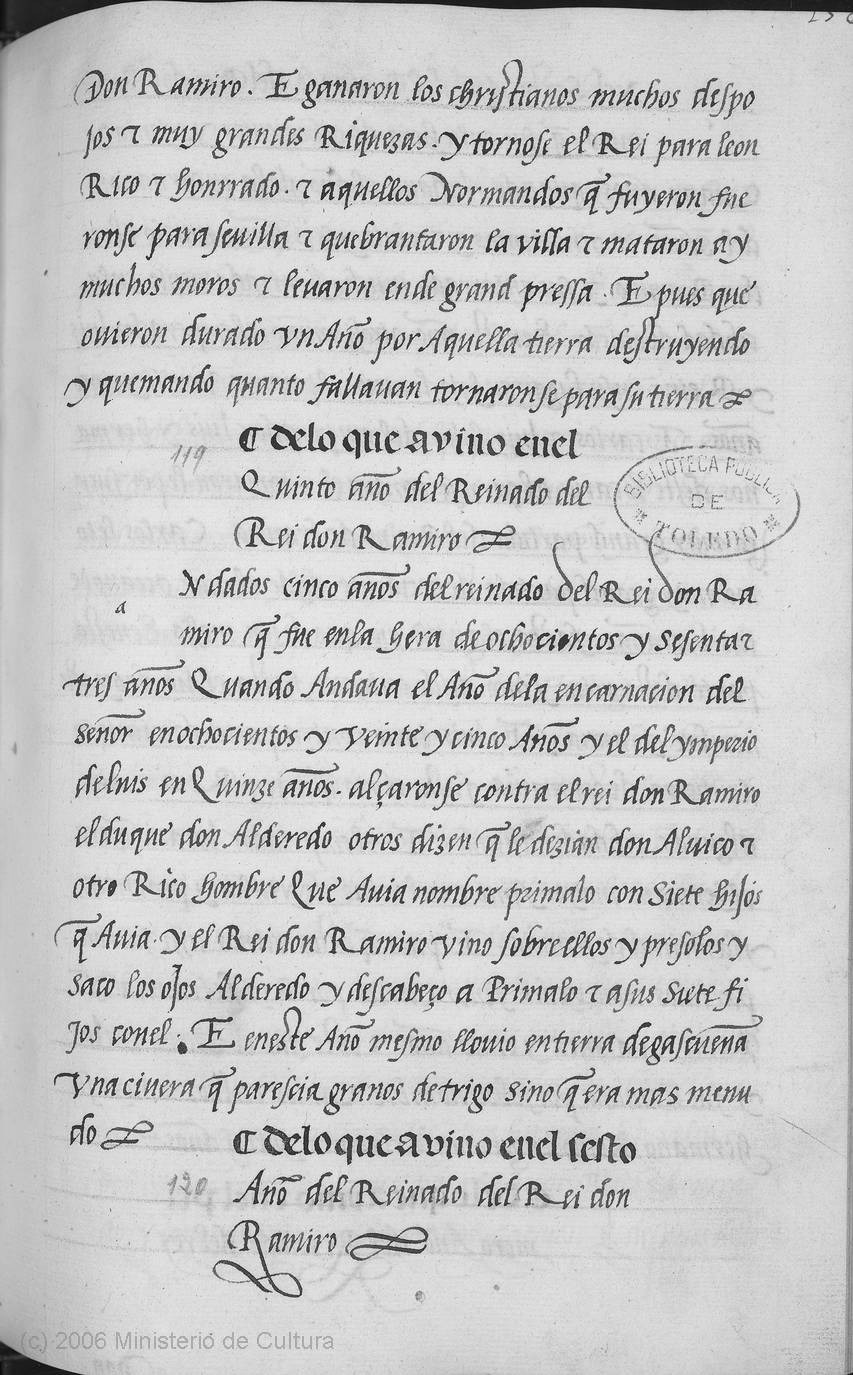 Don Ramiro. E ganaron los christianos muchos despo
jos τ muy grandes Riquezas. y tornose el Rei para leon
Rico τ honrrado. τ aquellos Normandos q̃ fuyeron fue
ronse para sevilla τ quebrantaron la villa τ mataron ay
muchos moros τ levaron ende grand pressa. E pues que
ovieron durado vn Año por Aquella tierra destruyendo
y quemando quanto fallavan tornaronse para su tierra
119
¶ delo que avino enel
Quinto año del Reinado del
Rei don Ramiro
BIBLIOTECA PUBLICA
DE
* TOLEDO *
a
Ndados cinco años del reinado del Rei don Ra
miro q̃ fue enla hera de ochocientos y sesenta τ
tres años Quando Andava el Año dela encarnacion del
señor en ochocientos y veinte y cinco Años y el del ymperio
de luis en Quinze años. alçaronse contra el rei don Ramiro
el duque don Alderedo otros dizen q̃ le dezian don Alvico τ
otro Rico hombre Que Avia nombre primalo con Siete hijos
q̃ Avia. y el Rei don Ramiro vino sobre ellos y presolos y
saco los ojos Alderedo y descabeço a Primalo τ a sus Siete fi
jos conel. E eneste Año mesmo llovio en tierra de gascueña
Vna civera q̃ parescia granos de trigo sino q̃ era mas menu
do
¶ delo que avino enel sesto
120
Año del Reinado del Rei don
Ramiro
(c) 2006 Ministerio de Cultura